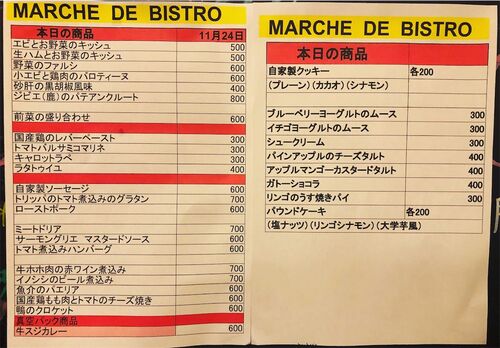 MARCHE DE BISTRO
本日の商品 11月24日
エビとお野菜のキッシュ 500
生ハムとお野菜のキッシュ 500
野菜のファルシ 300
小エビと鶏肉のバロティーヌ 600
砂肝の黒胡椒風味 400
ジビエ(鹿)のパテアンクルート 800
前菜の盛り合わせ 600
国産鶏のレバーペースト 300
トマトバルサミコマリネ 300
キャロットラペ 300
ラタトゥイユ 400
自家製ソーセージ 600
トリッパのトマト煮込みのグラタン 700
ローストポーク 600
ミートドリア 700
サーモングリエ マスタードソース 600
トマト煮込みハンバーグ 600
牛ホホ肉の赤ワイン煮込み 700
イノシシのビール煮込み 700
魚介のパエリア 600
国産鶏もも肉とトマトのチーズ焼き 600
鴨のクロケット 600
真空パック商品
牛スジカレー 600
MARCHE DE BISTRO
本日の商品
自家製クッキー 各200
(プレーン)(カカオ)(シナモン)
ブルーベリーヨーグルトのムース 300
イチゴヨーグルトのムース 300
シュークリーム 300
パインアップルのチーズタルト 400
アップルマンゴーカスタードタルト 400
ガトーショコラ 400
リンゴのうす焼きパイ 300
パウンドケーキ 各200
(塩ナッツ)(リンゴシナモン)(大学芋風)